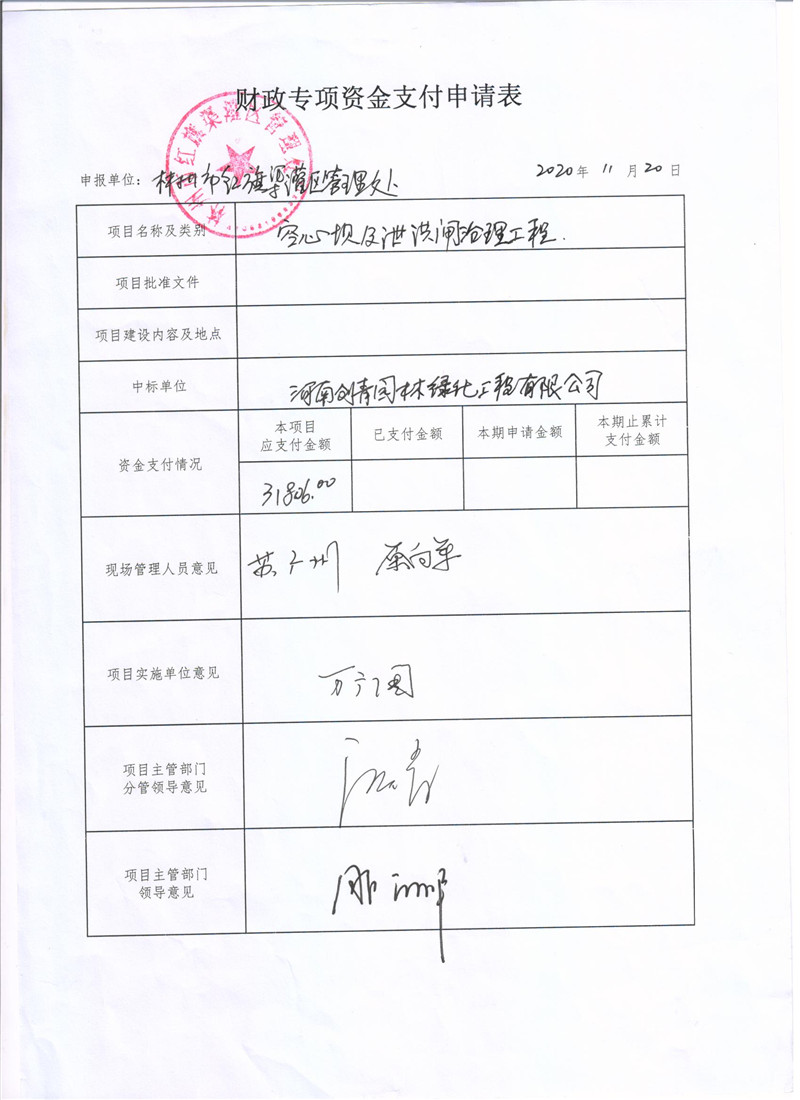 财政专项资金支付申请表
林州市红旗渠灌区管理处
申报单位：林州市红旗渠灌区管理处
2020年 11 月 20 日
项目名称及类别
空心坝及泄洪闸治理工程.
项目批准文件
项目建设内容及地点
中标单位
河南创青园林绿化工程有限公司
资金支付情况
本项目
应支付金额
已支付金额
本期申请金额
本期止累计
支付金额
31806.00
现场管理人员意见
项目实施单位意见
项目主管部门
分管领导意见
项目主管部门
领导意见